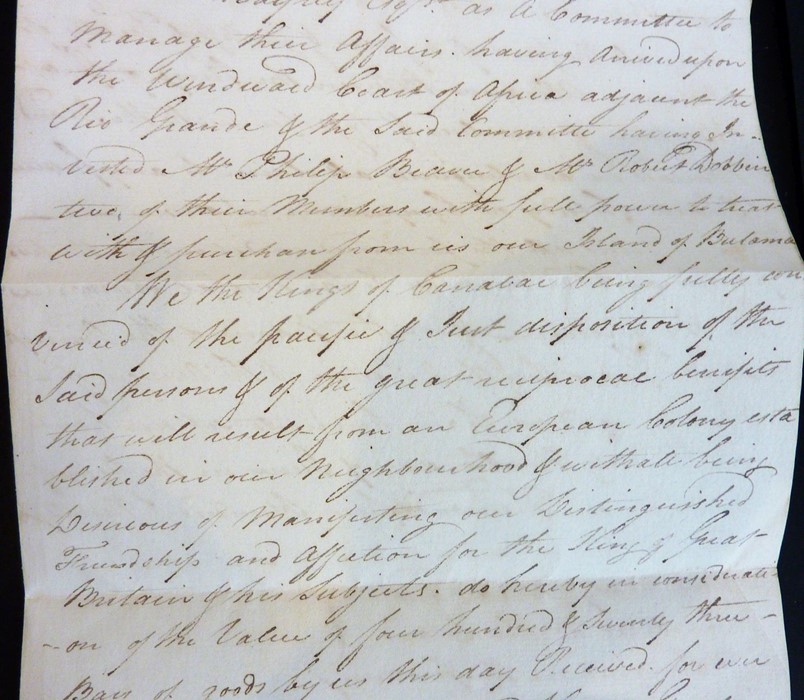 Esqr. as a Committee to
Manage their Affairs. having Arrived upon
the Windward Coast of Africa adjacent the
Rio Grande & the Said Committee having In-
vested Mr Philip Beaver & Mr Robert Dobbin
two, of their Members with full power to treat
with & purchase from us our Island of Bulama
We the Kings of Canabac being fully con
vinced of the pacific & Just disposition of the
Said persons & of the great reciprocal benefits
that will result from an European Colony esta
blished in our Neighbourhood & withall being
Desirous of Manifesting our Distinguished
Friendship and Affection for the King of Great
Britain & his Subjects. do hereby in considerati
-on of the Value of four hundred & Seventy three -
Bars of goods by us this day Received. for ever